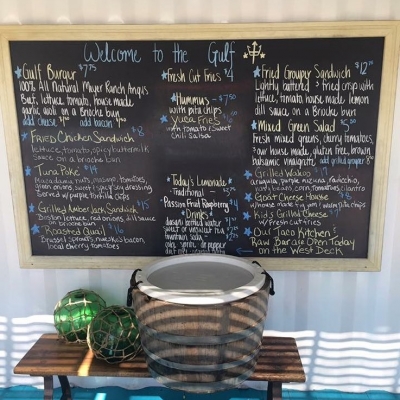 Welcome to the Gulf
Gulf Burger $7.75
100% All Natural Meyer Ranch Angus
Beef, lettuce, tomato, house made
garlic aioli on a Brioche bun
add cheese add bacon
Fried Chicken Sandwich $8
lettuce, tomato, spicy buttermilk
sauce on a brioche bun
Tuna Poke $14
Macadamia nuts, tomatoes,
green onions, sweet spicy soy dressing
served w/ purple tortilla chips
Grilled Amber Jack Sandwich $15
Boston lettuce, red onions, dill sauce
on Brioche bun
Roasted Quail $16
Brussel sprouts, bacon,
local cherry tomatoes
Fresh Cut Fries $4
Hummus $7.50
with pita chips
Yuca Fries
with tomato sweet
chili salsa
Today's Lemonade
Traditional
Passion Fruit Raspberry $4
Drinks
bottled water
sweet or unsweet tea
fountain soda
Fried Grouper Sandwich $12
Lightly battered & fried crisp with
lettuce, tomato, house made lemon
dill aioli on a Brioche bun
Mixed Green Salad $5
Fresh mixed greens, cherry tomatoes,
raw house made gluten free, brown
balsamic vinaigrette add grilled grouper
Grilled Wahoo
arugula, purple radicchio,
corn, tomatoes, cilantro
Goat Cheese House
house made fig jam w/ warm pita chips
Kid's Grilled Cheese
w/ fresh cut fries
Our Taco Kitchen &
Raw Bar are Open Today
on the West Deck